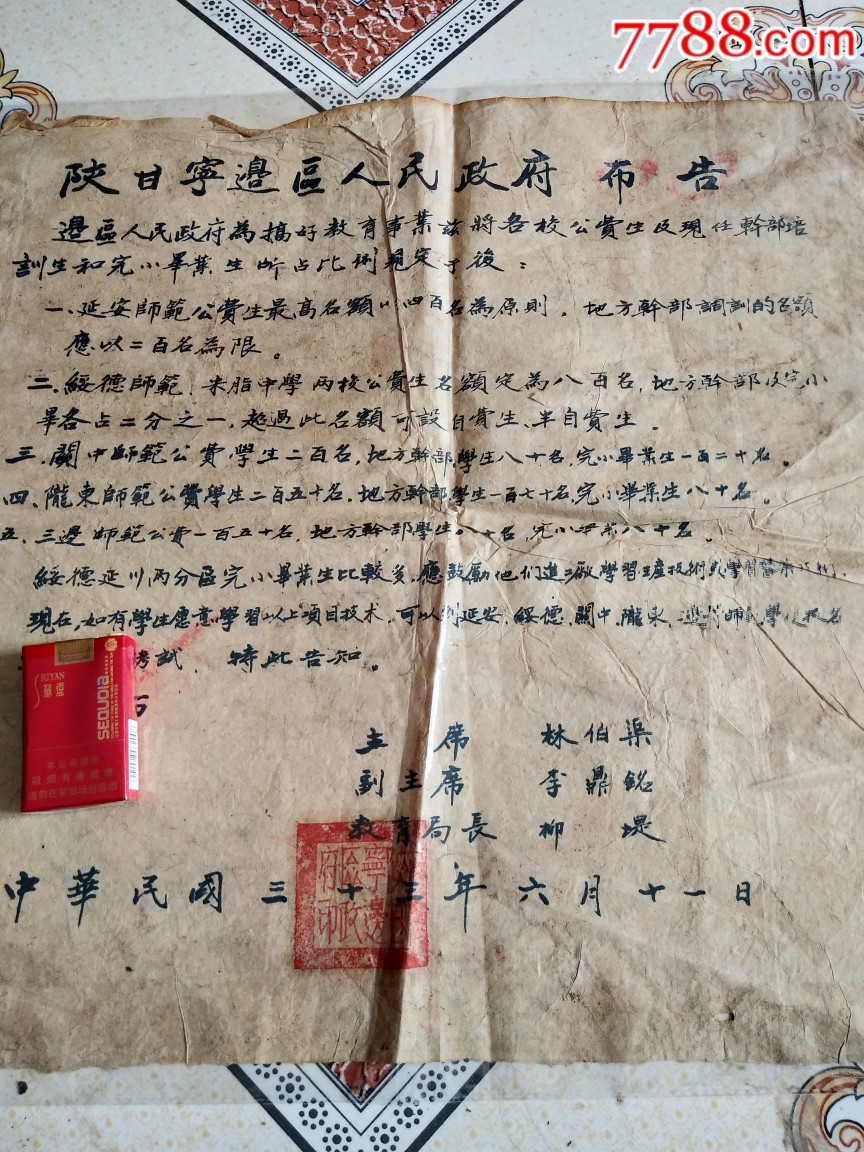 7788.com
陝甘寧邊區人民政府 布告
邊區人民政府為搞好教育事業茲將各校公費生及現任幹部培
訓生和完小畢業生所占比例規定于後：
一、延安師範公費生最高名額以四百名為原則，地方幹部調訓的名額
應以二百名為限。
二、綏德師範、米脂中學两校公費生名額定為八百名，地方幹部及完小
畢各占二分之一，超過此名額可設自費生、半自費生。
三、關中師範公費學生二百名，地方幹部學生八十名，完小畢業生一百二十名。
四、隴東師範公費學生二百五十名，地方幹部學生一百七十名，完小畢業生八十名。
五、三邊師範公費一百五十名，地方幹部學生八十名，完小畢業八十名。
綏德延川两分區完小畢業生比較多，應鼓勵他们進工廠學習生產技術或學習
現在，如有學生愿意學習以上項目技术，可以到延安、綏德、關中、隴东、師範學校报名
考試，特此告知。
主席 林伯渠
副主席 李鼎銘
教育局長 柳堤
中華民國三十三年六月十一日
SUYAN
蘇煙
SEQUOIA
本公司提示
吸烟有害健康
请勿在禁烟场所吸烟